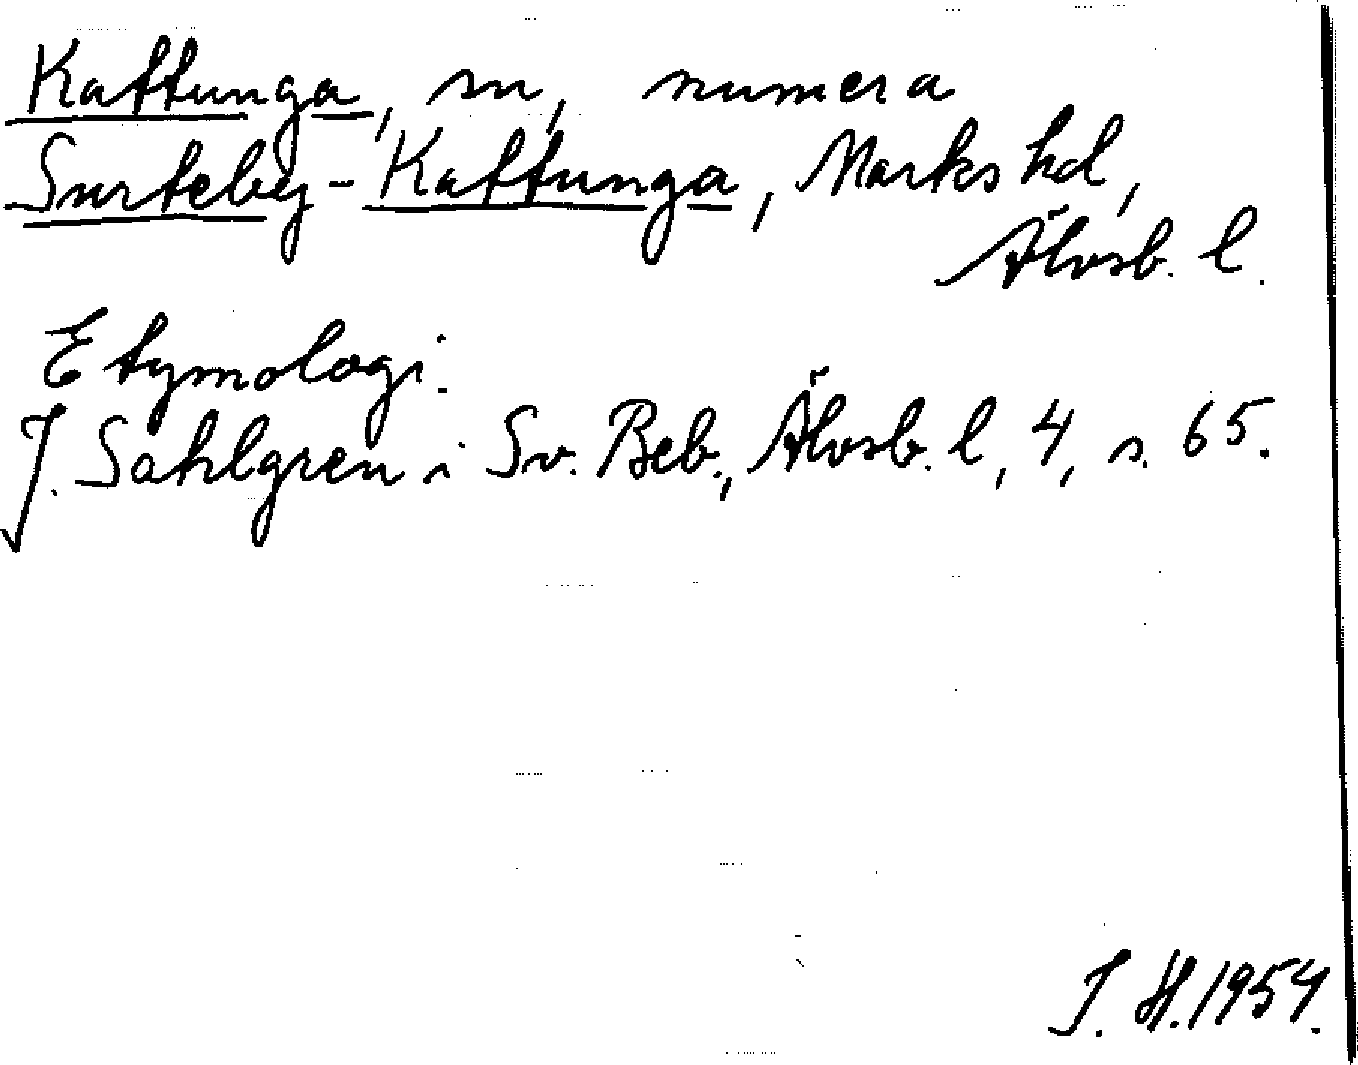 Kattunga, sn, numera
Surteby-Kattunga, Marks hd,
Älvsb. l.
Etymologi.
J. Sahlgren i Sv. Beb., Älvsb. l, 4, s. 65.
I. H. 1954.